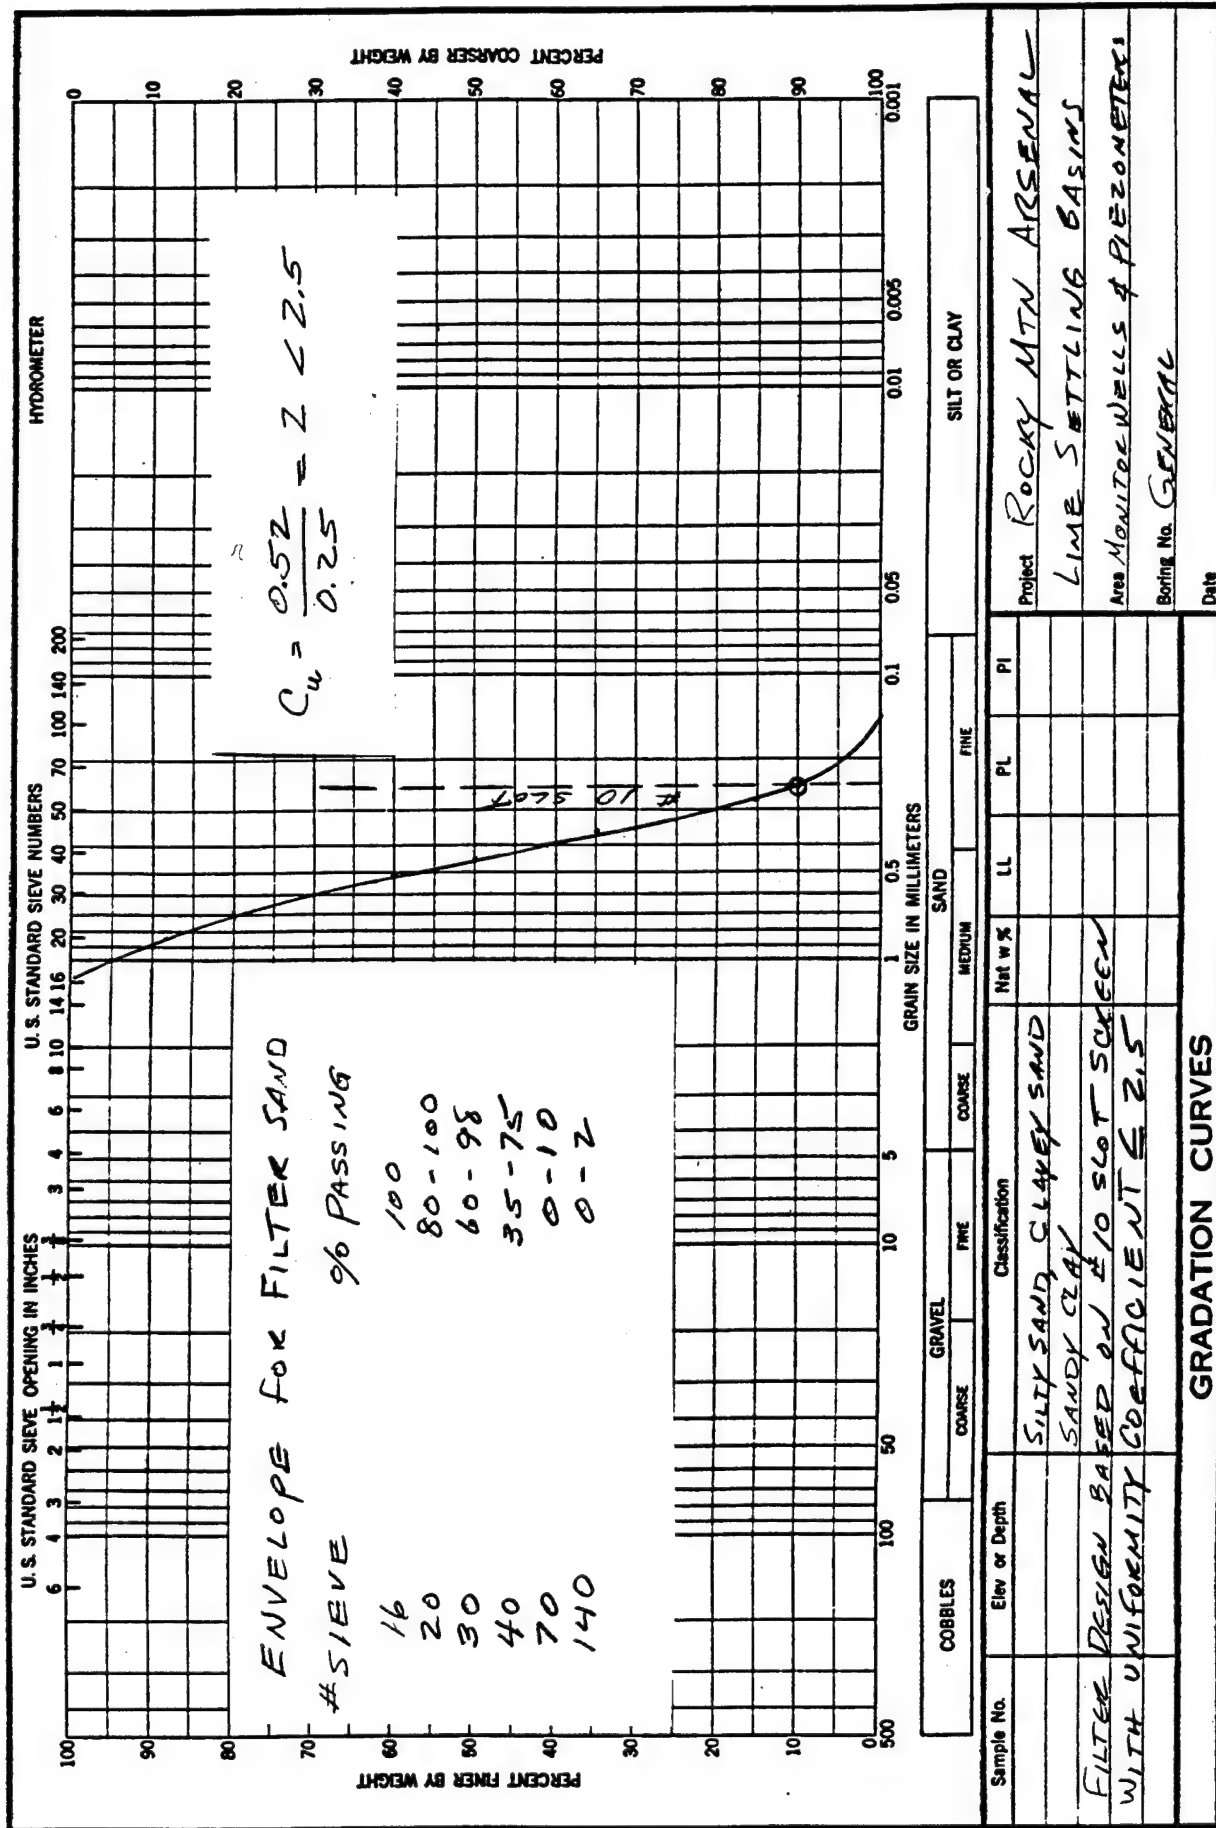 U. S. STANDARD SIEVE OPENING IN INCHES
U. S. STANDARD SIEVE NUMBERS
HYDROMETER
6 4 3 2 1½ 1 ¾ ½ ⅜ 3 4 6 8 10 14 16 20 30 40 50 70 100 140 200
PERCENT FINER BY WEIGHT
100
90
80
70
60
50
40
30
20
10
0
PERCENT COARSER BY WEIGHT
0
10
20
30
40
50
60
70
80
90
100
ENVELOPE FOR FILTER SAND
# SIEVE % PASSING
16 100
20 80-100
30 60-98
40 35-75
70 0-10
140 0-2
Cu = 0.52 / 0.25 = 2 < 2.5
# 10 SLOT
500 100 50 10 5 1 0.5 0.1 0.05 0.01 0.005 0.001
GRAIN SIZE IN MILLIMETERS
COBBLES GRAVEL SAND SILT OR CLAY
COARSE FINE COARSE MEDIUM FINE
Sample No. Elev or Depth Classification Nat w % LL PL PI
SILTY SAND, CLAYEY SAND
SANDY CLAY
FILTER DESIGN BASED ON #10 SLOT SCREEN
WITH UNIFORMITY COEFFICIENT ≤ 2.5
Project ROCKY MTN ARSENAL
LIME SETTLING BASINS
Area MONITOR WELLS & PIEZOMETERS
Boring No. GENERAL
Date
GRADATION CURVES